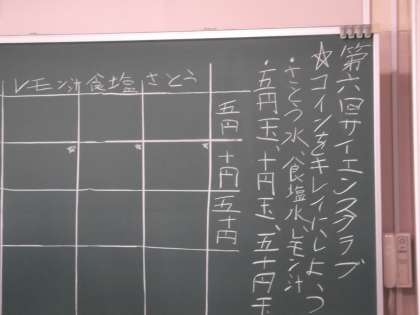 第六回サイエンスクラブ
☆コインをキレイにしよう
・さとう水、食塩水、レモン汁
・五円玉、十円玉、五十円玉
レモン汁 食塩 さとう
五円
十円
五十円